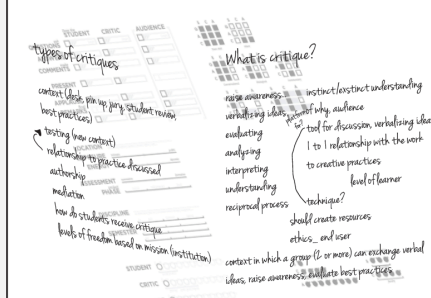 STUDENT CRITIC AUDIENCE
types of critiques
COMMENTS
PRESENT
context (desk, pin up, jury, student review,
best practices)
testing (new context)
relationship to practice discussed
authorship
mediation
how do students receive critique
levels of freedom based on mission (institution)
ASSESSMENT
PHASE
DISCIPLINE
SEMESTER
STUDENT
CRITIC
What is critique?
raise awareness
verbalizing ideas
evaluating
analyzing
interpreting
understanding
reciprocal process
instinct/exstinct understanding
of why, audience
tool for discussion, verbalizing idea
1 to 1 relationship with the work
to creative practices
level of learner
technique?
should create resources
ethics_ end user
context in which a group (2 or more) can exchange verbal
ideas, raise awareness, evaluate best practices